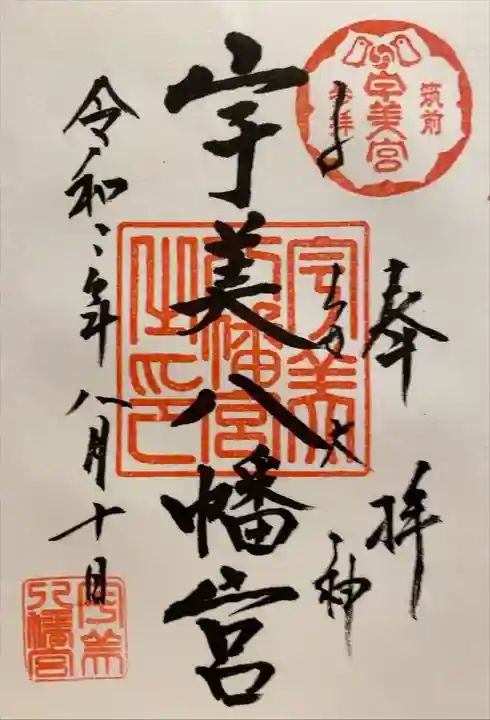 筑前
宇美宮
参拝
奉拝
子安大神
宇美八幡宮
宇美八幡宮之印
令和二年八月十日
宇美八幡宮